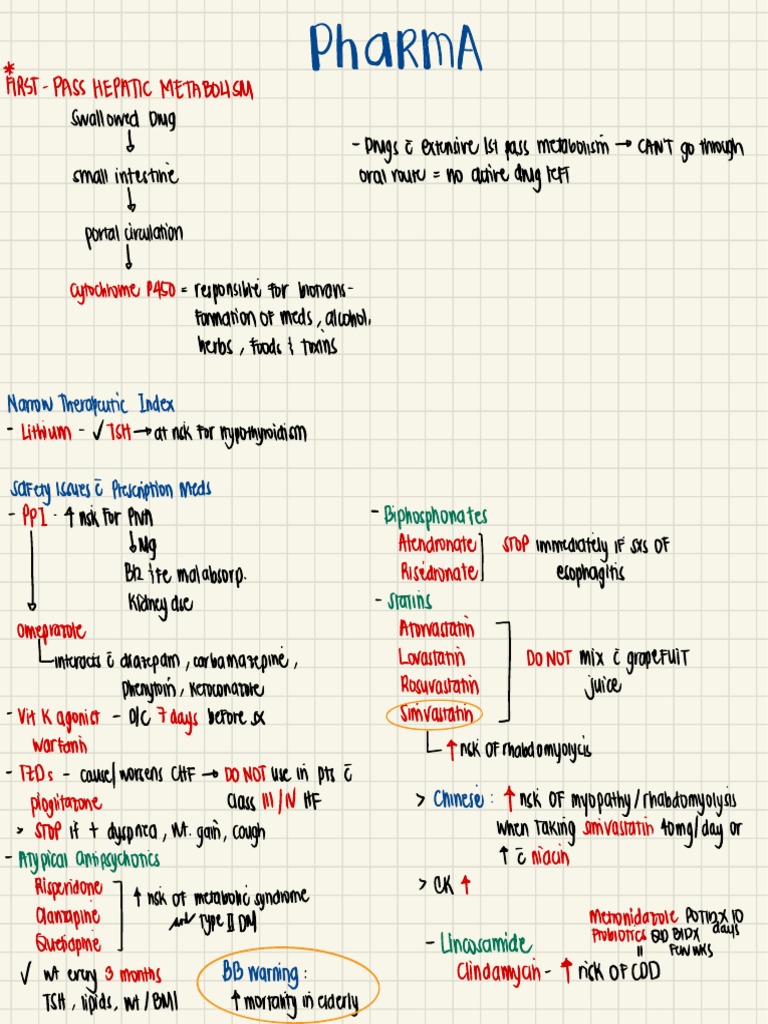 PhARMA
* FIRST-PASS HEPATIC METABOLISM
Swallowed Drug
↓
small intestine
↓
portal circulation
↓
Cytochrome P450 = responsible for biotrans-
formation of meds, alcohol,
herbs, foods & toxins
- Drugs c̄ extensive 1st pass metabolism → CAN'T go through
oral route = no active drug left
Narrow Therapeutic Index
- Lithium - ✓ TSH → at risk for hypothyroidism
Safety Issues c̄ Prescription Meds
- PPI - ↑ risk for PNA
↓Mg
B12 & Fe malabsorp.
Kidney dse
omeprazole
interacts c̄ diazepam, carbamazepine,
phenytoin, ketoconazole
- Vit K agonist - D/C 7 days before sx
warfarin
- TZDs - cause/worsens CHF → DO NOT use in pts c̄
pioglitazone class III/IV HF
> STOP if + dyspnea, wt. gain, cough
- Atypical Antipsychotics
Risperidone
Olanzapine
Quetiapine
↑ risk of metabolic syndrome
and Type II DM
✓ wt every 3 months
TSH, lipids, wt/BMI
BB Warning:
↑ mortality in elderly
- Biphosphonates
Alendronate
Risedronate
STOP immediately if sxs of
esophagitis
- Statins
Atorvastatin
Lovastatin
Rosuvastatin
Simvastatin
DO NOT mix c̄ grapefruit
juice
↑ risk of rhabdomyolysis
> Chinese: ↑ risk of myopathy/rhabdomyolysis
when taking simvastatin 40mg/day or
↑ c̄ niacin
> CK ↑
- Lincosamide
Clindamycin - ↑ risk of CDD
Metronidazole PO TID x 10
days
Probiotics BIDX
few wks